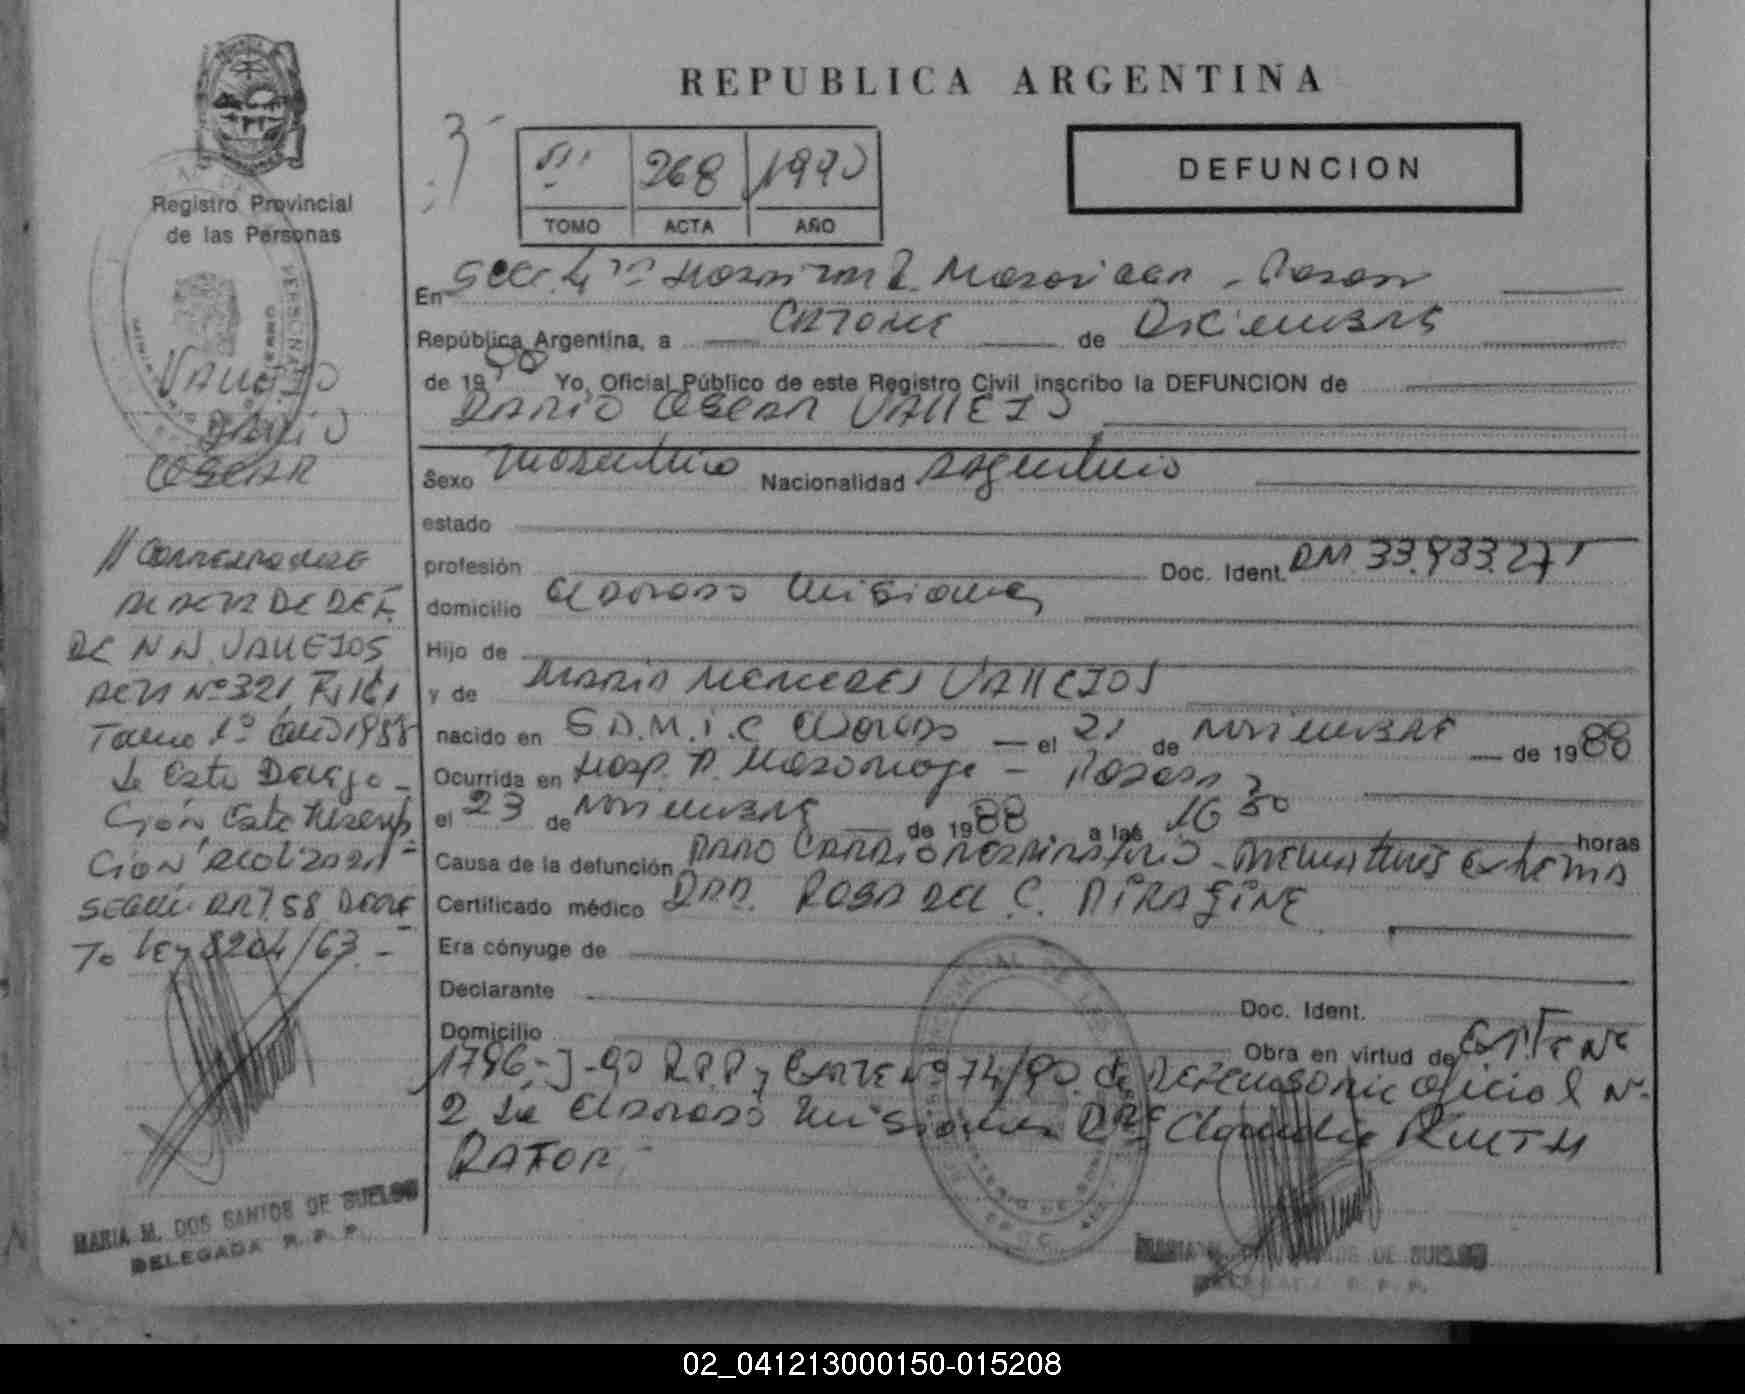 REPUBLICA ARGENTINA
268 1990
TOMO ACTA AÑO
DEFUNCION
Registro Provincial
de las Personas
VALLEJO
DARIO
OSCAR
// CORRESPONDE
AL ACTA DE DEF.
DE N N VALLEJOS
ACTA Nº 321,
Tomo 1º año 1988
de Esta Delega-
ción Esta Inscrip
ción
SEGÚN ART. 58 DECRE
To LEY 8204/63.-
MARIA M. DOS SANTOS DE SUELDO
DELEGADA R. P. P.
En Secc. 4ta Hospital - Posadas
República Argentina, a CATORCE de DICIEMBRE
de 1990 Yo, Oficial Público de este Registro Civil inscribo la DEFUNCION de
DARIO OSCAR VALLEJO
Sexo masculino Nacionalidad argentino
estado
profesión Doc. Ident. DNI 33.933.271
domicilio Misiones
Hijo de
y de MARIA MERCEDES VALLEJOS
nacido en S.A.M.i.C el 21 de NOVIEMBRE de 1988
Ocurrida en Hosp. - Posadas
el 23 de NOVIEMBRE de 1988, a las 16 30 horas
Causa de la defunción PARO CARDIORESPIRATORIO - Prematurez extrema
Certificado médico DRA. ROSA DEL C.
Era cónyuge de
Declarante Doc. Ident.
Domicilio Obra en virtud de
1796-J-90 R.P.P y Nº 74/90 de oficial Nº
2 de Misiones Claudia
MARIA M. DOS SANTOS DE SUELDO
DELEGADA R. P. P.
02_041213000150-015208